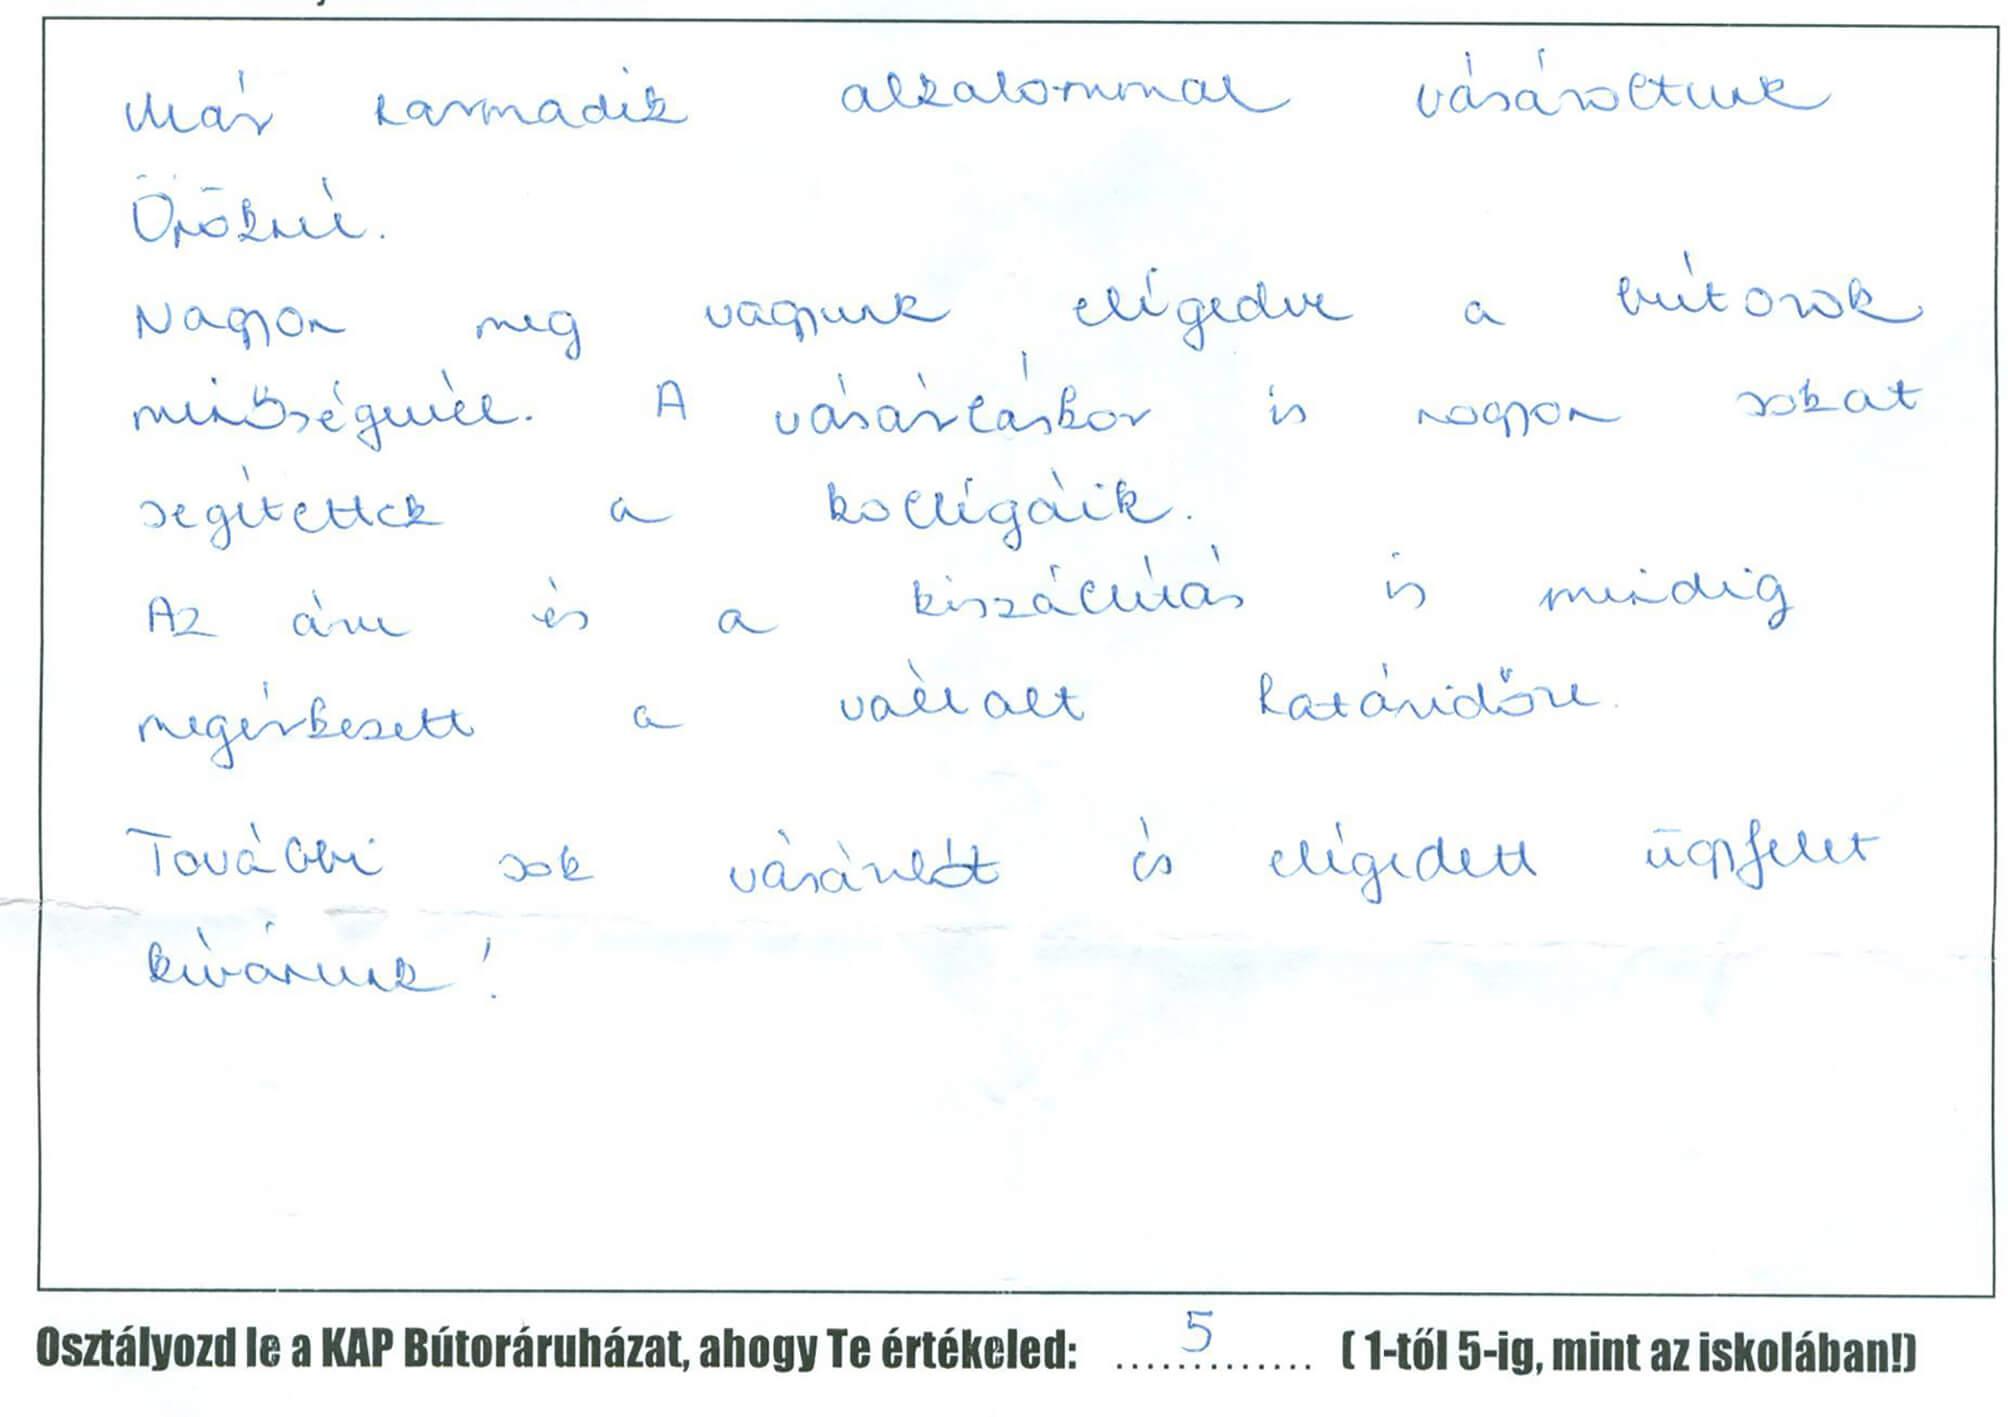 Már harmadik alkalommal vásároltunk
Önöknél.
Nagyon meg vagyunk elégedve a bútorok
minőségével. A vásárláskor is nagyon sokat
segítettek a kollégáik.
Az áru és a kiszállítás is mindig
megérkezett a vállalt határidőre.
További sok vásárlót és elégedett ügyfelet
kívánunk!
Osztályozd le a KAP Bútoráruházat, ahogy Te értékeled: 5 ( 1-től 5-ig, mint az iskolában!)